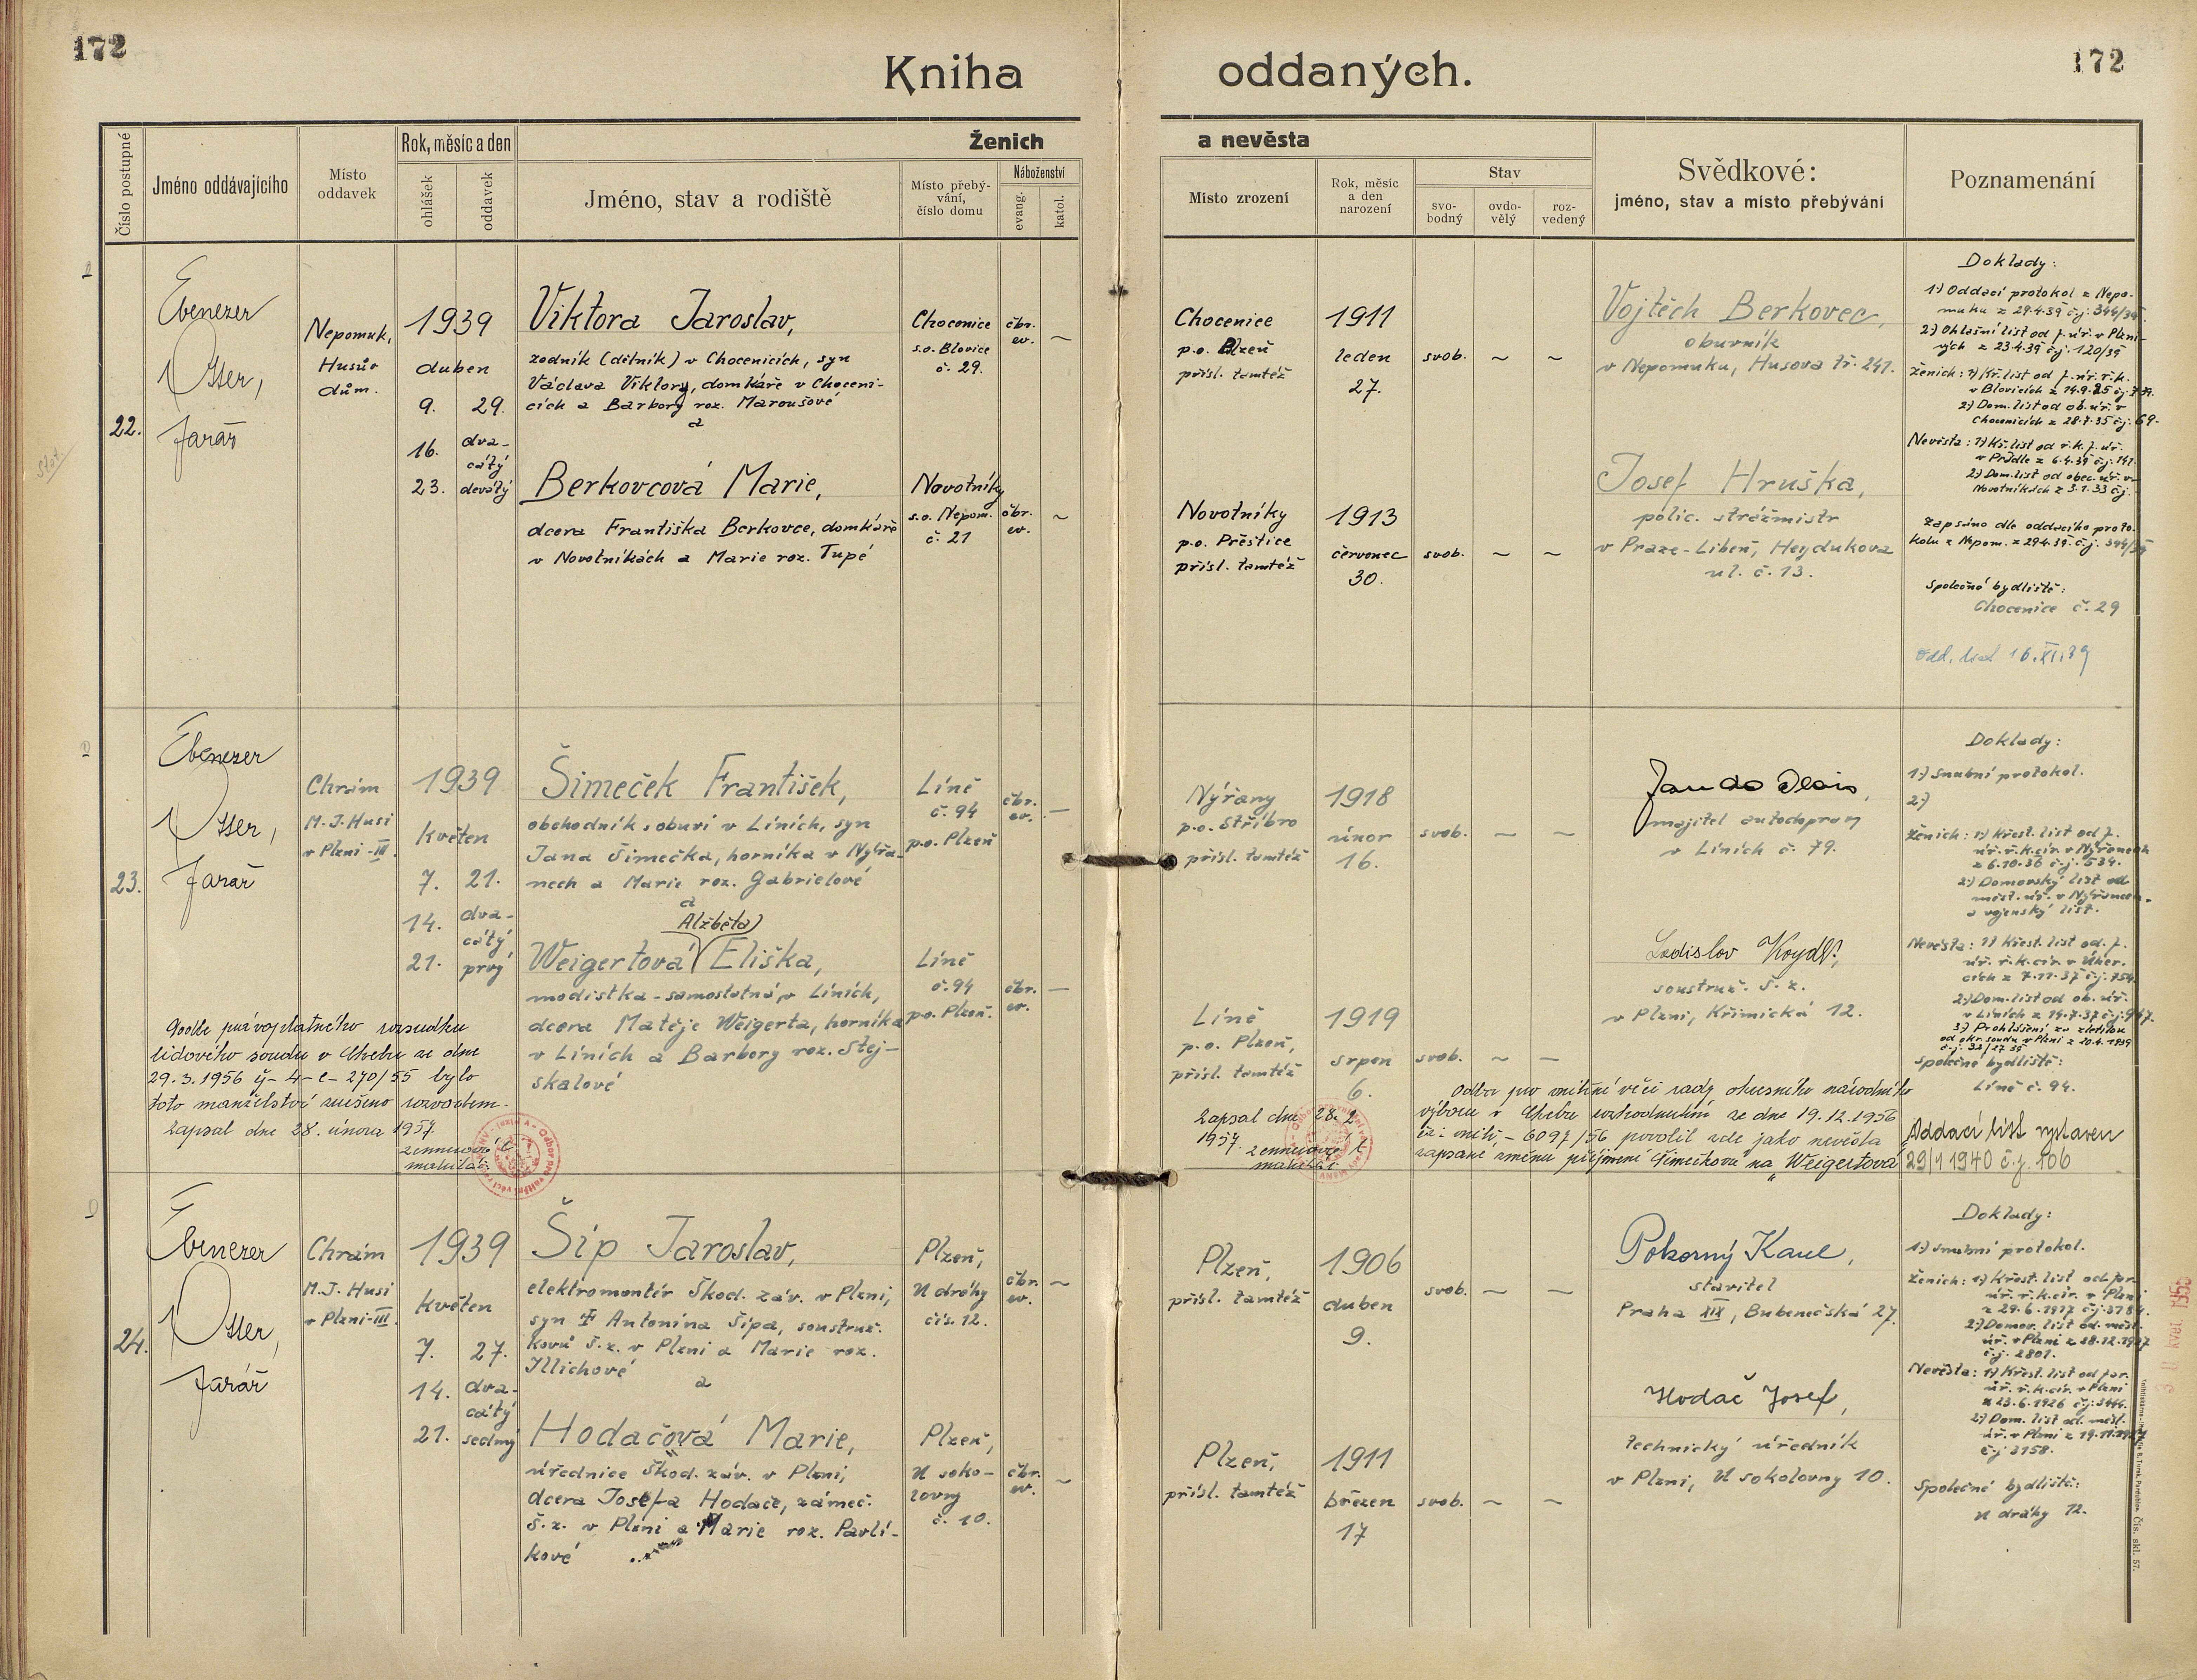 172
172
Kniha oddaných.
Číslo postupné
Jméno oddávajícího
Místo oddavek
Rok, měsíc a den
ohlášek
oddavek
Ženich a nevěsta
Jméno, stav a rodiště
Místo přebývání, číslo domu
Náboženství
evang.
katol.
Místo zrození
Rok, měsíc a den narození
Stav
svobodný
ovdovělý
rozvedený
Svědkové:
jméno, stav a místo přebývání
Poznamenání
22.
Ebenezer
Otter,
farář
Nepomuk,
Husův
dům.
1939
duben
9. 29.
16. dva-
cátý
23. devátý
Viktora Jaroslav,
zedník (dělník) v Chocenicích, syn
Václava Viktory, domkáře v Choceni-
cích a Barbory roz. Maroušové
a
Berkovcová Marie,
dcera Františka Berkovce, domkáře
v Novotníkách a Marie roz. Tupé
Chocenice
s.o. Blovice
č. 29.
čbr.
ev.
Novotníky
s.o. Nepom.
č. 21
čbr.
ev.
Chocenice
p.o. Plzeň
přísl. tamtéž
1911
leden
27.
svob. ~ ~
Novotníky
p.o. Přeštice
přísl. tamtéž
1913
červenec
30.
svob. ~ ~
Vojtěch Berkovec,
obuvník
v Nepomuku, Husova tř. 241.
Josef Hruška,
polic. strážmistr
v Praze-Libeň, Heydukova
ul. č. 13.
Doklady:
1) Oddací protokol z Nepo-
muku z 29.4.39 č.j. 344/39.
2) Ohlašní list od f. úř. v Plzni
z 23.4.39 č.j. 120/39
Ženich: 1) Kř. list od f. úř. ř.k.
v Blovicích z 14.9.25
2) Dom. list od ob. úř. v
Chocenicích z 28.7.35 č.j. 69.
Nevěsta: 1) Kř. list od ř.k. f. úř.
v Prádle z 6.4.39 č.j. 141.
2) Dom. list od obec. úř. v
Novotníkách z 3.1.33 č.j.
Zapsáno dle oddacího proto-
kolu z Nepom. z 29.4.39. č.j. 344/39
Společné bydliště:
Chocenice č. 29
Odd. list 16.XI.39
23.
Ebenezer
Otter,
farář
Chrám
M.J. Husi
v Plzni-III.
1939
květen
7. 21.
14. dva-
cátý
21. prvý
Šimeček František,
obchodník s obuví v Líních, syn
Jana Šimečka, horníka v Nýřa-
nech a Marie roz. Gabrielové
a
Alžběta
Weigertová Eliška,
modistka-samostatná, v Líních,
dcera Matěje Weigerta, horníka
v Líních a Barbory roz. Stej-
skalové
Líně
č. 94
p.o. Plzeň
čbr.
ev.
Líně
č. 94
p.o. Plzeň.
čbr.
ev.
Nýřany
p.o. Stříbro
přísl. tamtéž
1918
únor
16.
svob. ~ ~
Líně
p.o. Plzeň,
přísl. tamtéž
1919
srpen
6.
svob. ~ —
majitel autodopravy
v Líních č. 79.
soustruž. Š.z.
v Plzni, Křimická 12.
Doklady:
1) Snubní protokol.
2)
Ženich: 1) Křest. list od f.
úř. ř.k. cír. v Nýřanech
z 6.10.36 č.j. 534.
2) Domovský list od
měst. úř. v Nýřanech.
a vojenský list.
Nevěsta: 1) Křest. list od f.
úř. ř.k. cír. v Úher-
cích z 7.11.37 č.j. 754.
2) Dom. list od ob. úř.
v Líních z 14.7.37
3) Prohlášení
od okr. soudu v Plzni z 20.4.1939
Společné bydliště:
Líně č. 94.
Podle pravoplatného rozsudku
lidového soudu v Chebu ze dne
29.3.1956 č- 4-c- 270/55 bylo
toto manželství zrušeno rozvodem.
Zapsal dne 28. února 1957
Zapsal dne 28. 2.
1957.
Odbor pro vnitřní věci rady okresního národního
výboru v Chebu rozhodnutím ze dne 19.12.1956
čj: vnitř.- 6097/56 povolil zde jako nevěsta
zapsané změnu příjmení Šimečková na "Weigertová"
Oddací list vystaven
29/1 1940 č.j. 106
24.
Ebenezer
Otter,
farář
Chrám
M.J. Husi
v Plzni-III.
1939
květen
7. 27.
14. dva-
cátý
21. sedmý
Šíp Jaroslav,
elektromontér Škod. záv. v Plzni,
syn † Antonína Šípa, soustruž-
kovů Š.z. v Plzni a Marie roz.
Illichové
a
Hodačová Marie,
úřednice Škod. záv. v Plzni,
dcera Josefa Hodače, zámeč.
Š.z. v Plzni a Marie roz. Pavlí-
kové
Plzeň,
U dráhy
čís. 12.
čbr.
ev.
Plzeň,
U soko-
lovny
č. 10.
čbr.
ev.
Plzeň,
přísl. tamtéž
1906
duben
9.
svob. ~ ~
Plzeň,
přísl. tamtéž
1911
březen
17
svob. ~ ~
Pokorný Karel,
stavitel
Praha XIX, Bubenečská 27.
Hodač Josef,
technický úředník
v Plzni, U sokolovny 10.
Doklady:
1) Snubní protokol.
Ženich: 1) Křest. list od far.
úř. ř.k. cír. v Plzni
z 29.6.1917
2) Domov. list od měst.
úř. v Plzni z 28.12.1927
č.j. 2801.
Nevěsta: 1) Křest. list od far.
úř. ř.k. cír. v Plzni
z 23.6.1926 č.j. 3444.
2) Dom. list od měst.
úř. v Plzni
č.j. 3158.
Společné bydliště:
U dráhy 12.